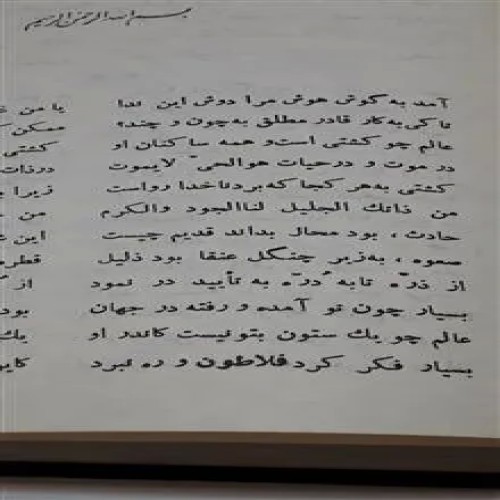 بسم الله الرحمن الرحیم
آمد به گوش هوش مرا دوش این ندا یا من
تا کی به کار قادر مطلق به چون و چند، ممکن
عالم چو کشتی است و همه ساکنان او کشتی
در موت و در حیات هو الحی لایموت در ذات
کشتی به هر کجا که برد ناخدا رواست زیرا
من ذاتک الجلیل لنا الجود والکرم من
حادث، بود محال بداند قدیم چیست این
صعوه، به زیر جنگل عنقا بود ذلیل قطر
از ذره تا به دره به تأیید در نمود از
بسیار چون تو آمده و رفته در جهان بود
عالم چو یک ستون بتونیست کاندر او یک
بسیار فکر کرد فلاطون و ره نبرد کاین